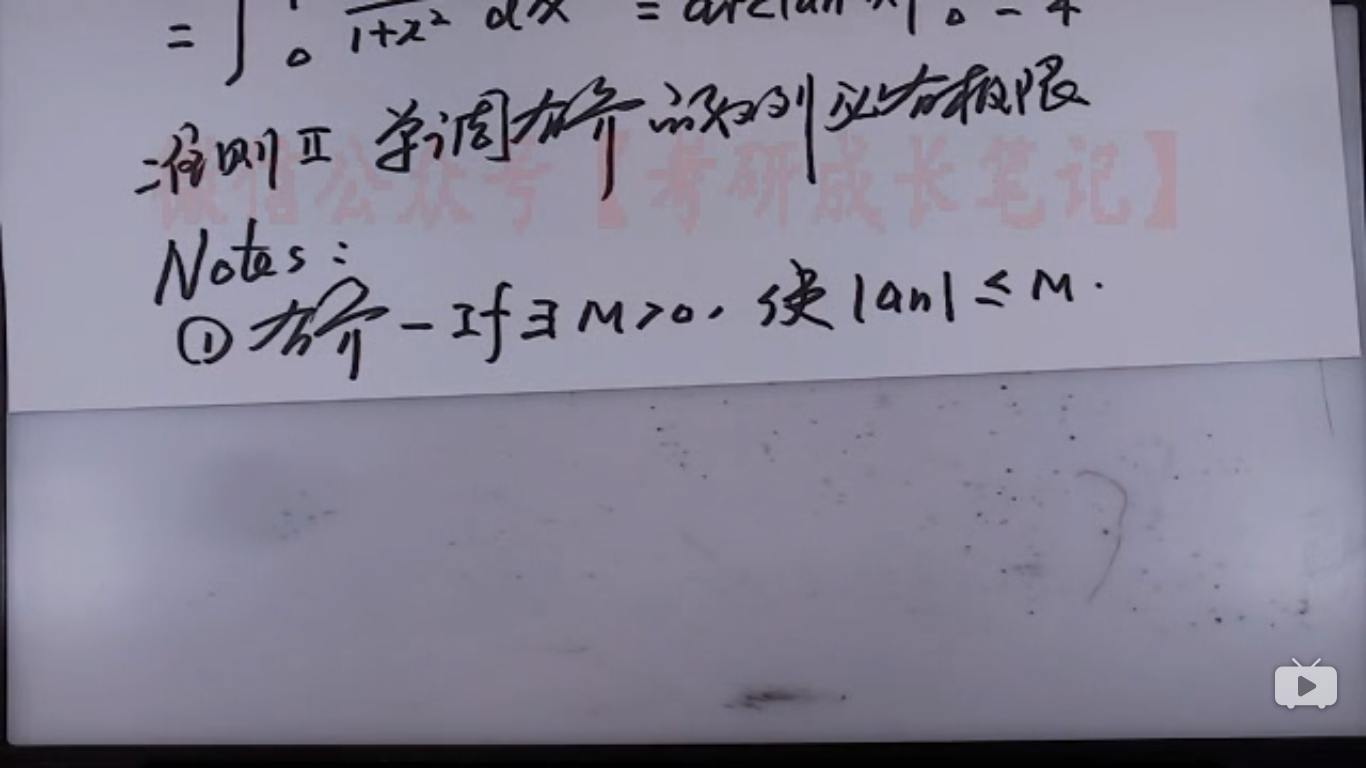 = ∫₀¹ 1/(1+x²) dx = arctan x|₀ - 4
二准则 II 单调有界的数列必有极限
微信公众号【考研成长笔记】
Notes:
① 有界 - If ∃ M>0, 使 |an| ≤ M.